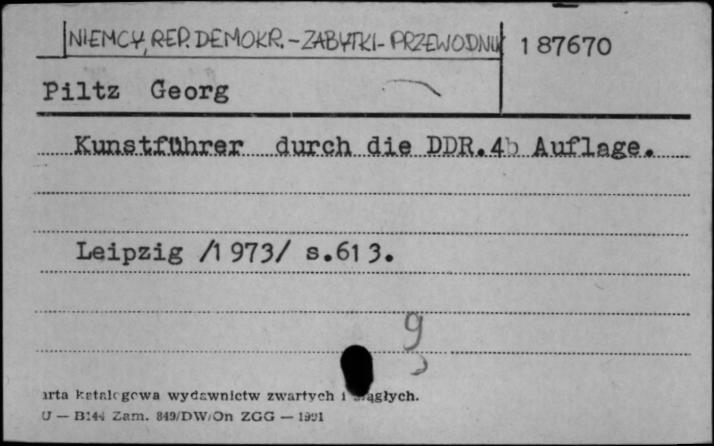 NIEMCY, REP. DEMOKR. - ZABYTKI - PRZEWODNIK
187670
Piltz Georg
Kunstführer durch die DDR.4b Auflage.
Leipzig /1973/ s.613.
9
arta katalogowa wydawnictw zwartych i ciągłych.
U — B144 Zam. 849/DW/On ZGG — 1991